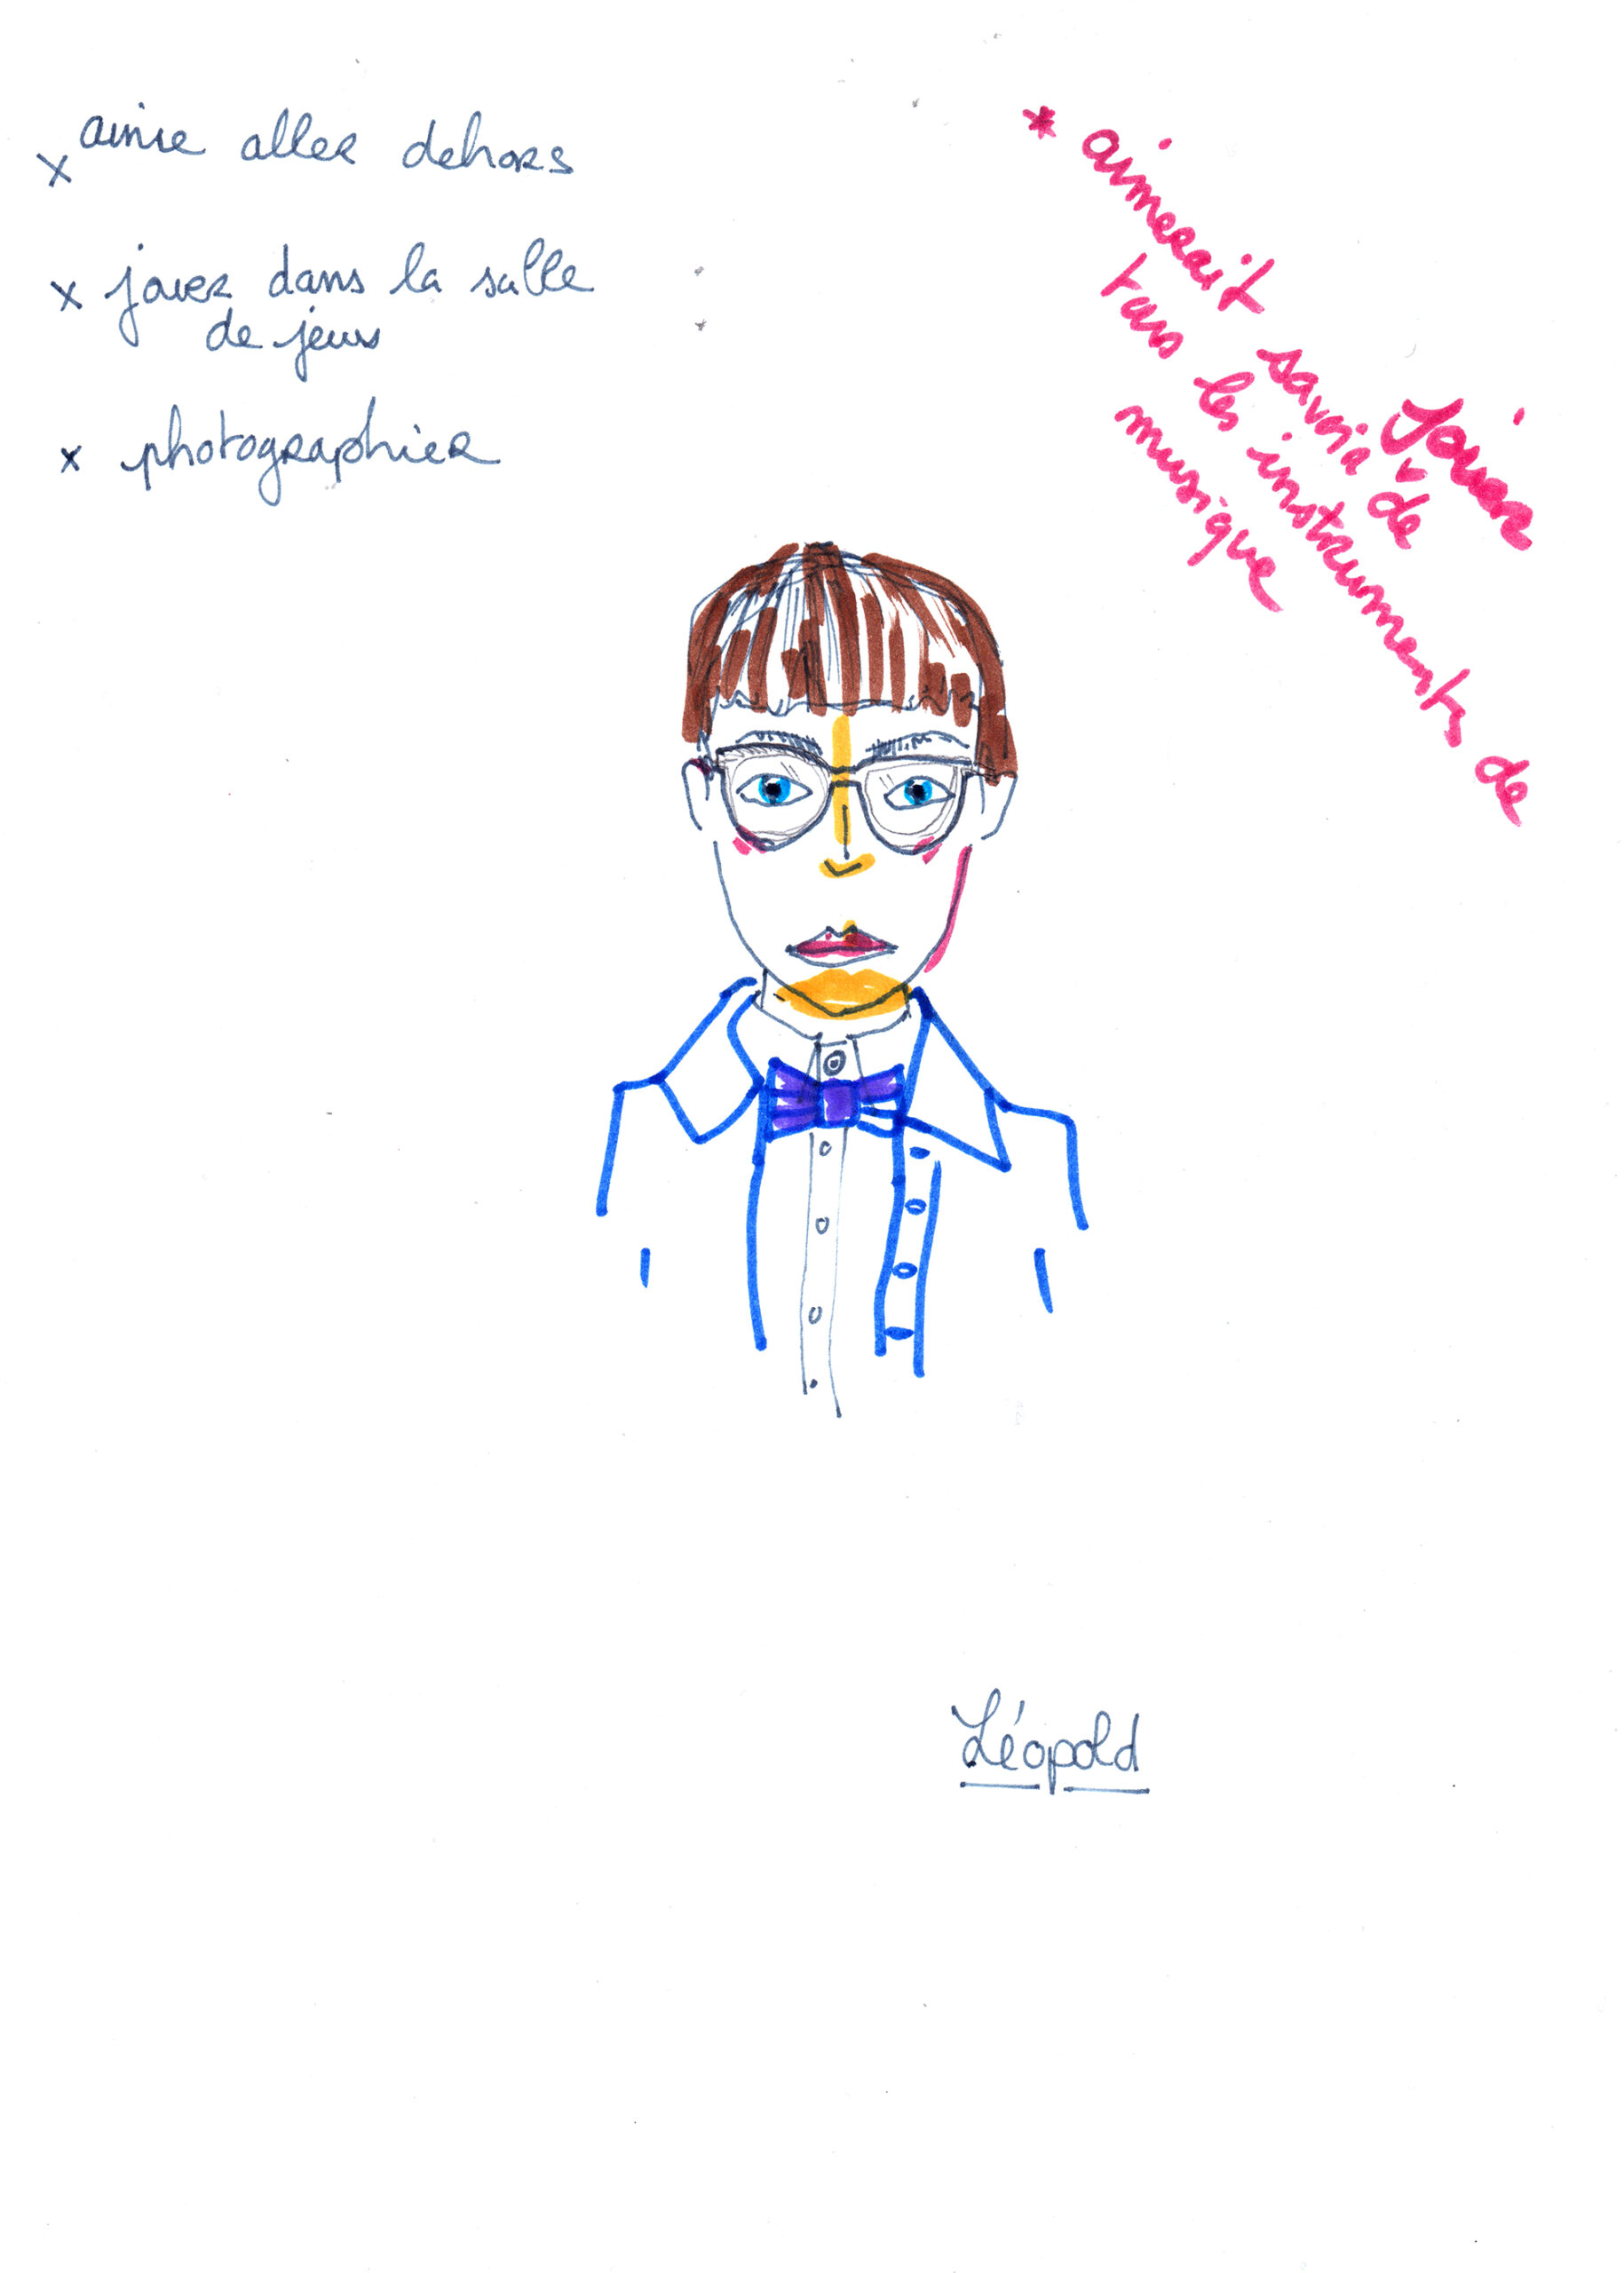 x aime aller dehors
x jouer dans la salle
de jeux
x photographier
* aimerait savoir jouer de
tous les instruments de
musique
Léopold